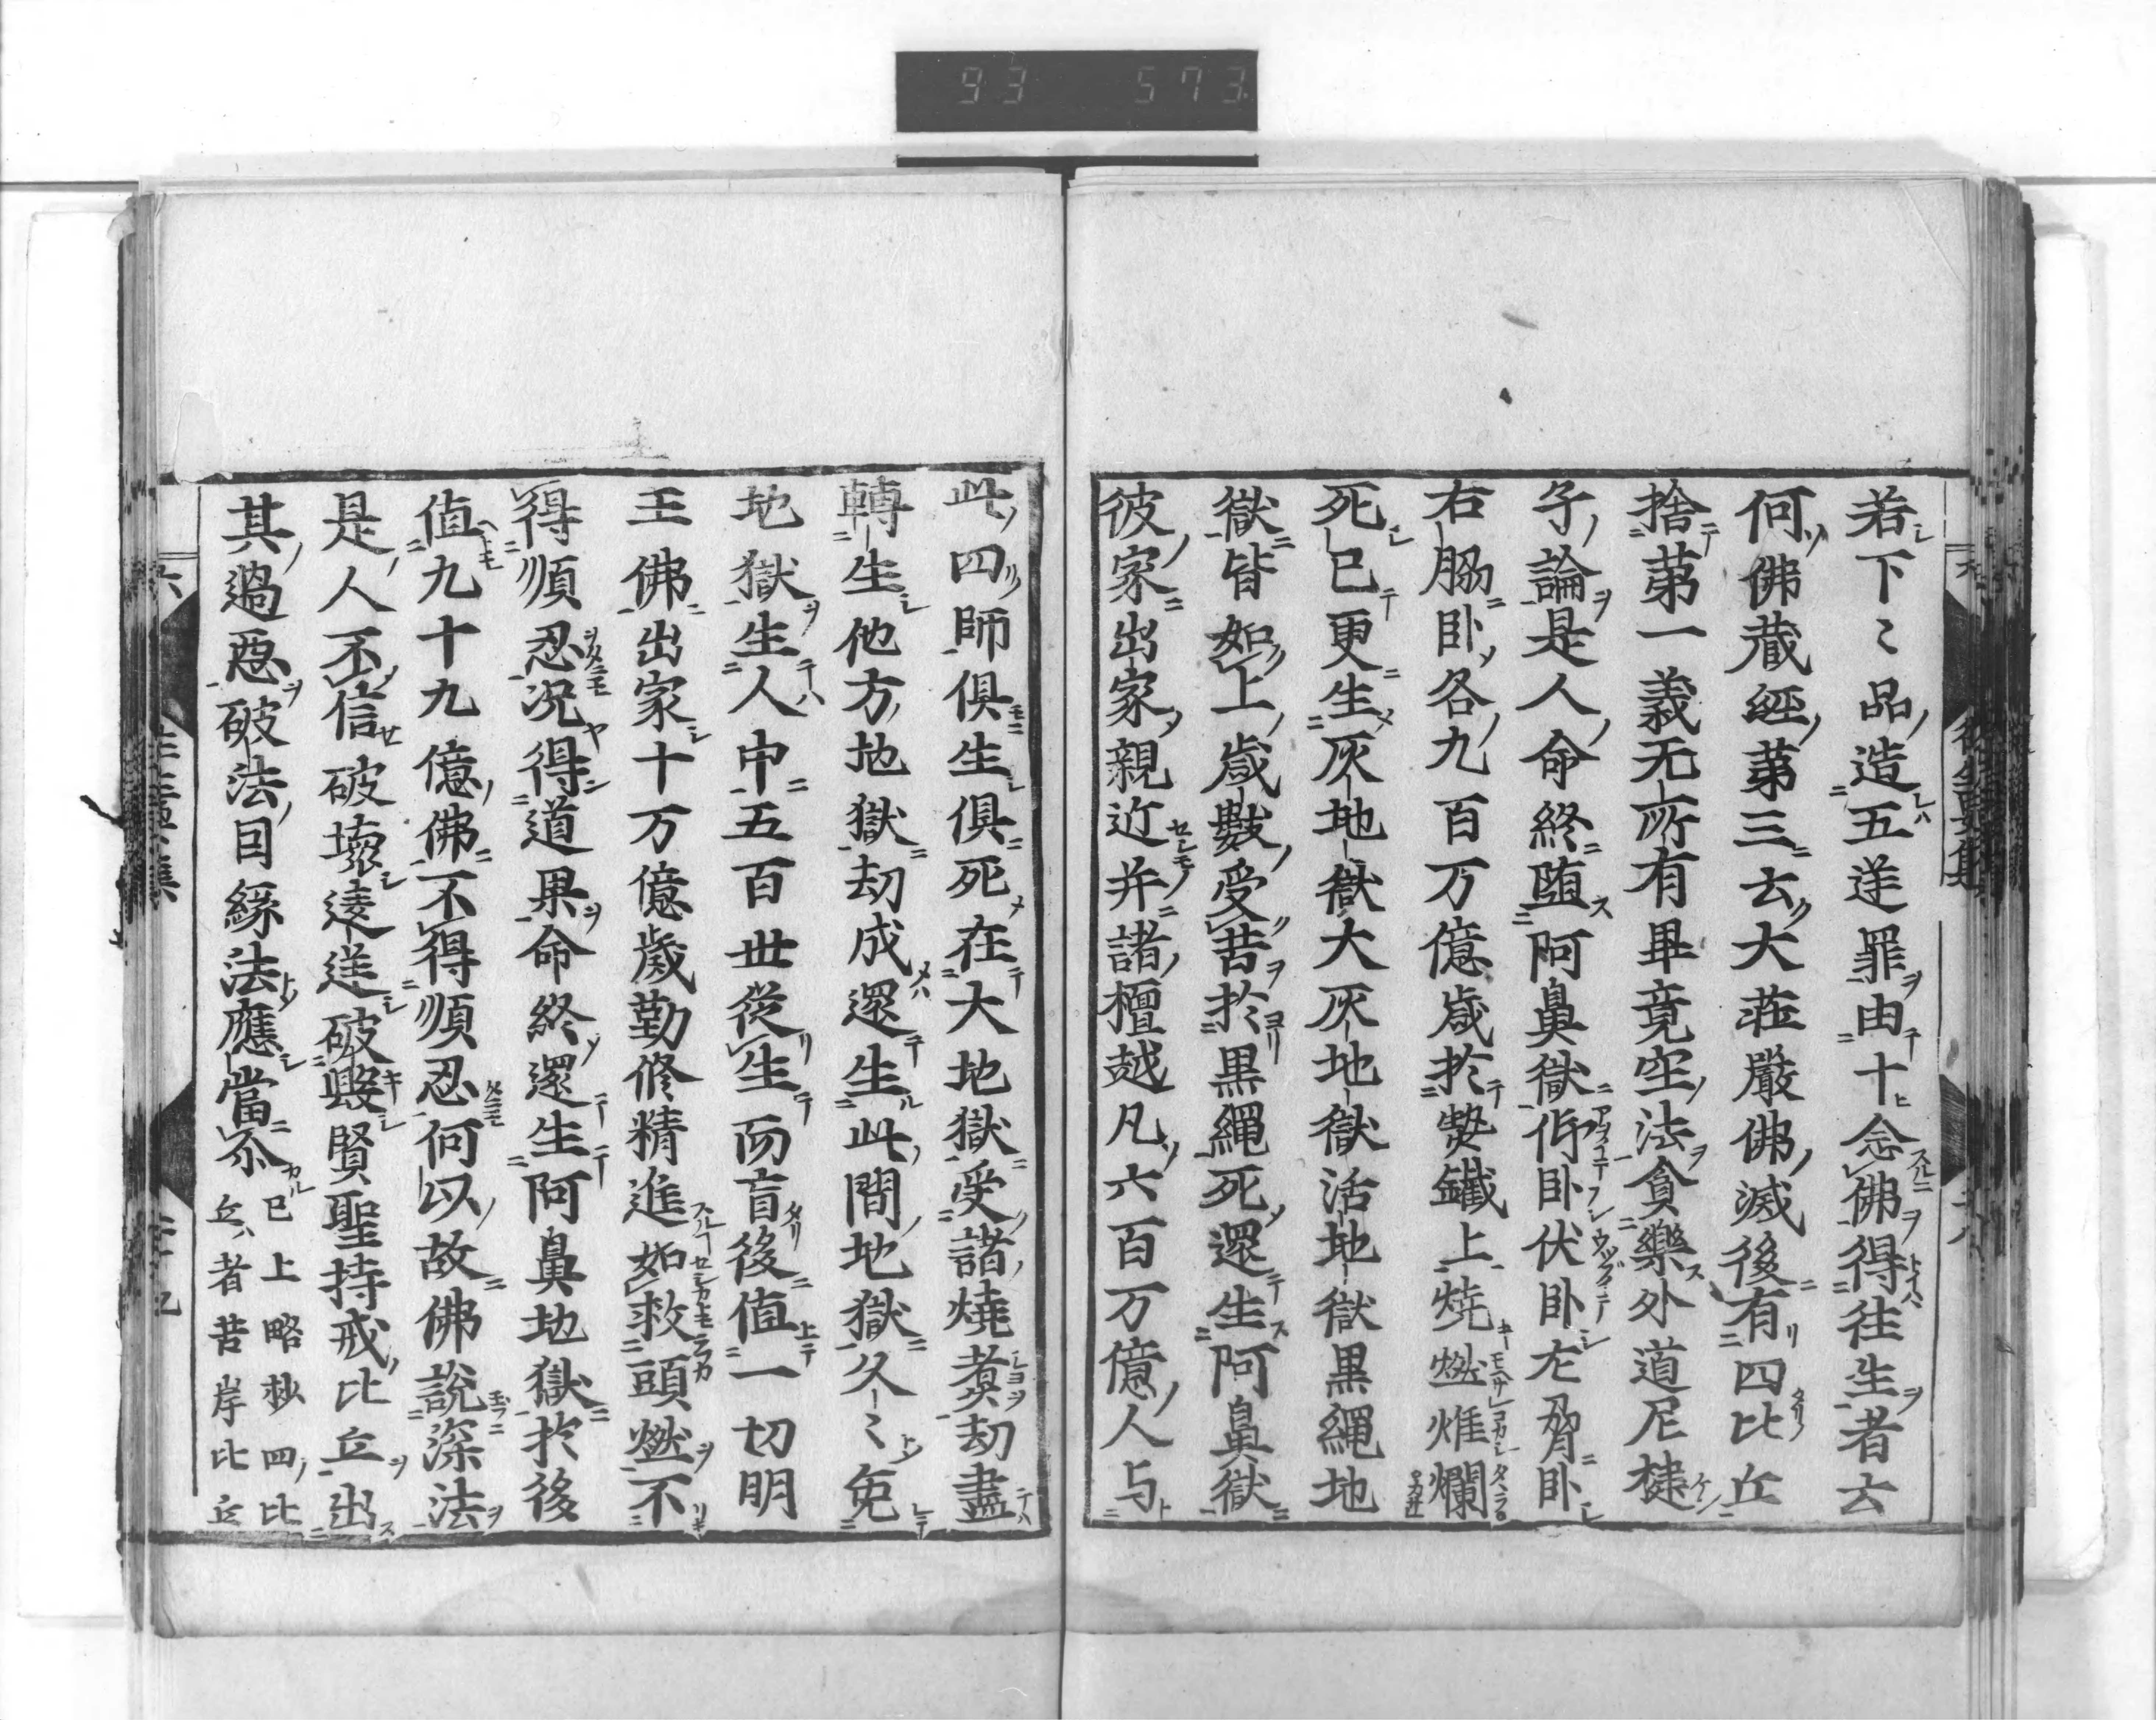 93 573
若下〻品造五逆罪由十念佛得往生者云
何佛藏經第三云大莊嚴佛滅後有四比丘
捨第一義无所有畢竟空法貪樂外道尼揵
子論是人命終墮阿鼻獄仰臥伏臥左脅臥
右脇臥各九百万億歲於熱鐵上燒燃燋爛
死已更生灰地獄大灰地獄活地獄黒繩地
獄皆如上歲數受苦於黒繩死還生阿鼻獄
彼家出家親近并諸檀越凡六百万億人与
此四師俱生俱死在大地獄受諸燒煮劫盡
轉生他方地獄劫成還生此間地獄久〻免
地獄生人中五百世從生而盲後值一切明
王佛出家十万億歲勤修精進如救頭燃不
得順忍況得道果命終還生阿鼻地獄於後
值九十九億佛不得順忍何以故佛說深法
是人不信破壞違逆破毀賢聖持戒比丘出
其過惡破法因緣法應當尒
已上略抄四比
丘者苦岸比丘